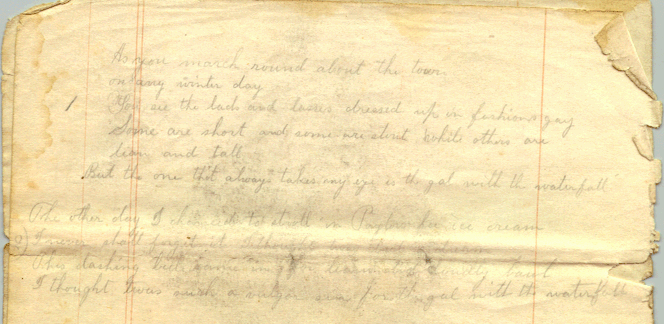 As you march round about the town
on any winter day
1 You see the lads and lasses dressed up in fashions gay
Some are short and some are stout while others are
lean and tall
But the one that always takes my eye is the gal with the waterfall
The other day I to stroll in for ice cream
2) I never shall forget it I thought
This dashing belle came in
I thought twas such a for the gal with the waterfall